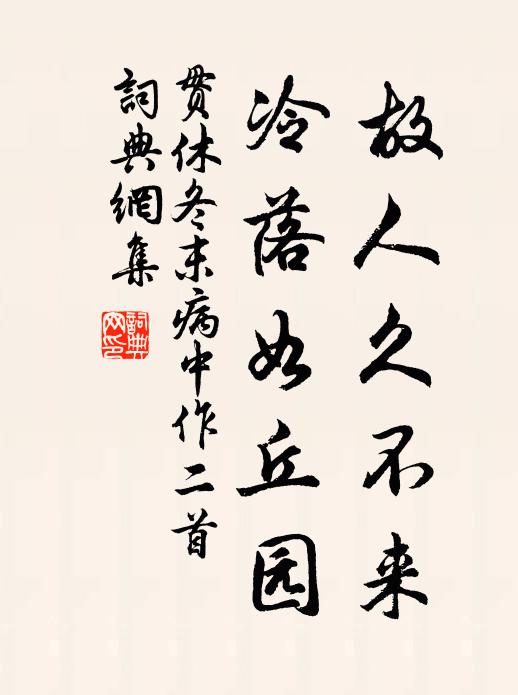 故人久不来
冷落如丘园
贯休冬末病中作二首
词典網集
詞典網印